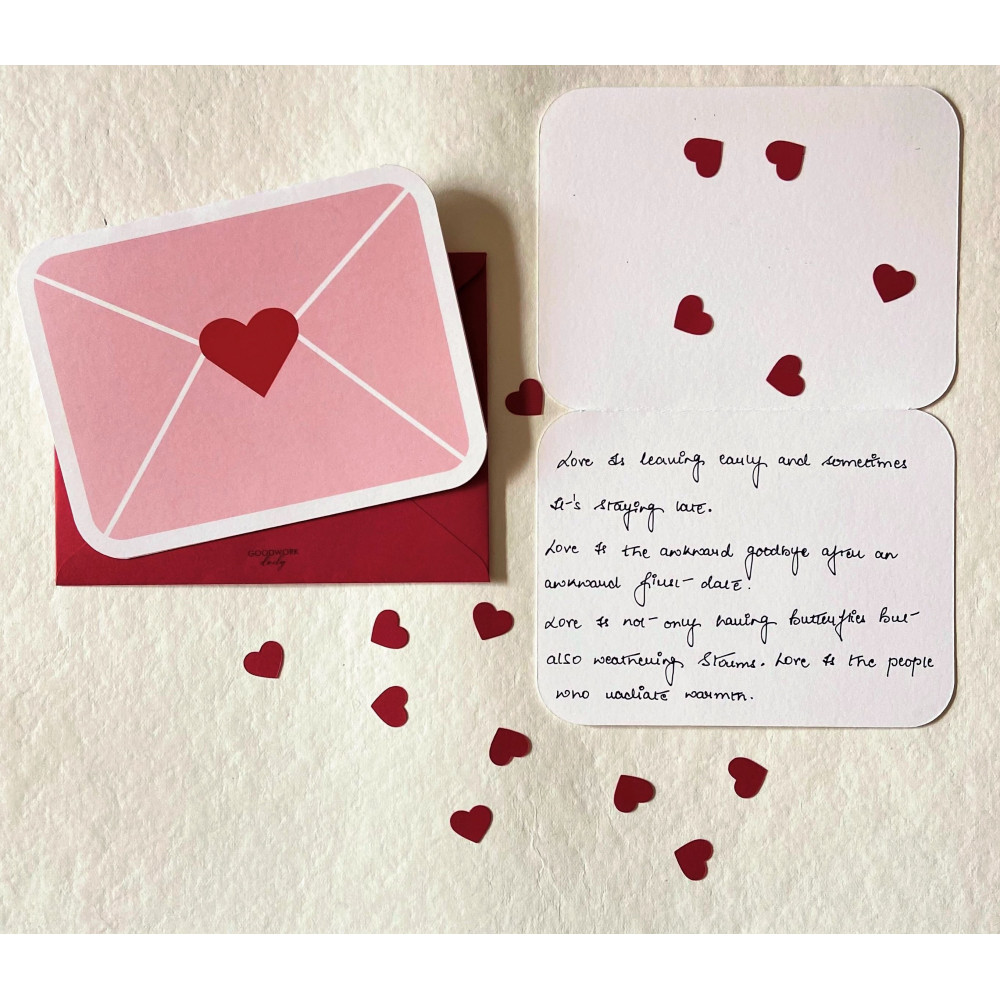 GOODWORK
daily
Love is leaving early and sometimes
it's staying late.
Love is the awkward goodbye after an
awkward first date.
Love is not only having butterflies but
also weathering storms. Love is the people
who radiate warmth.